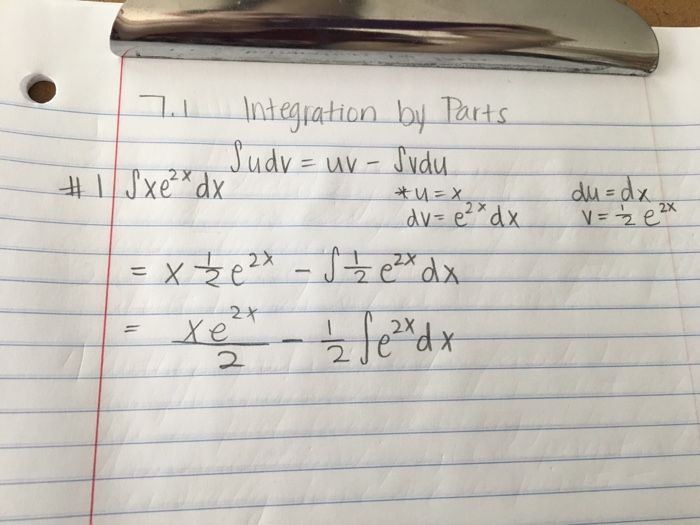 7.1 Integration by Parts
∫udv = uv - ∫vdu
#1 ∫xe²ˣdx *u=x du=dx
dv=e²ˣdx v=½e²ˣ
= x ½ e²ˣ - ∫½ e²ˣ dx
= xe²ˣ/2 - ½ ∫e²ˣdx